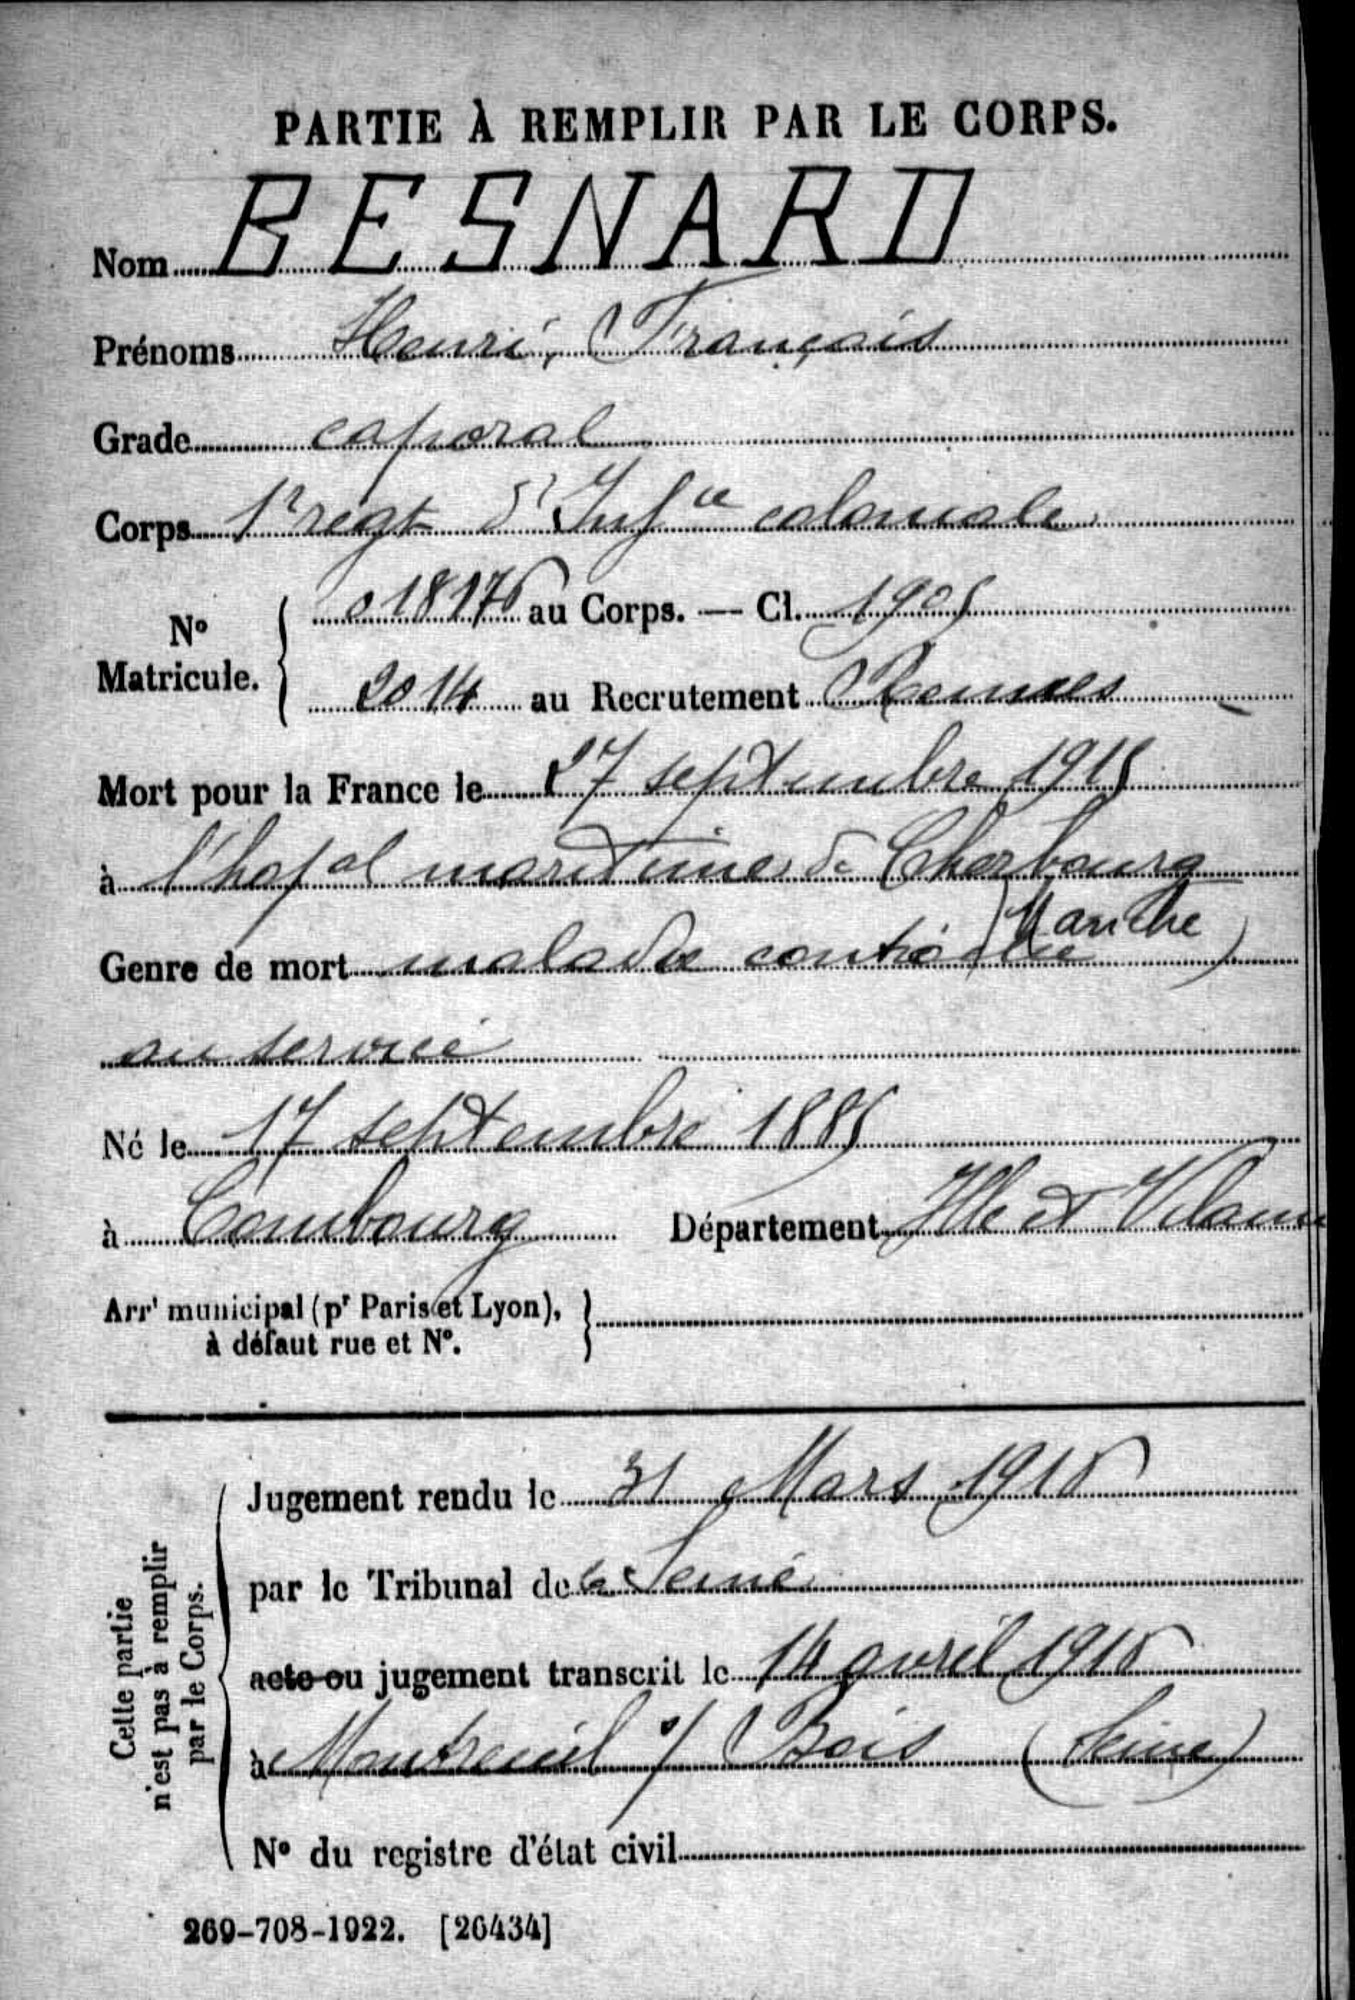 PARTIE À REMPLIR PAR LE CORPS.
Nom BESNARD
Prénoms Henri, François
Grade caporal
Corps 1r régt d'Infie coloniale
No Matricule. 018176 au Corps. — Cl. 1905
2014 au Recrutement Rennes
Mort pour la France le 27 septembre 1915
à l'hopal maritime de Cherbourg
(Manche)
Genre de mort maladie contractée
au service
Né le 17 septembre 1885
à Combourg Département Ille et Vilaine
Arrt municipal (pr Paris et Lyon),
à défaut rue et No.
Cette partie
n'est pas à remplir
par le Corps.
Jugement rendu le 31 Mars 1916
par le Tribunal de la Seine
acte ou jugement transcrit le 14 avril 1916
à Montreuil s/ Bois (Seine)
No du registre d'état civil
269-708-1922. [26434]